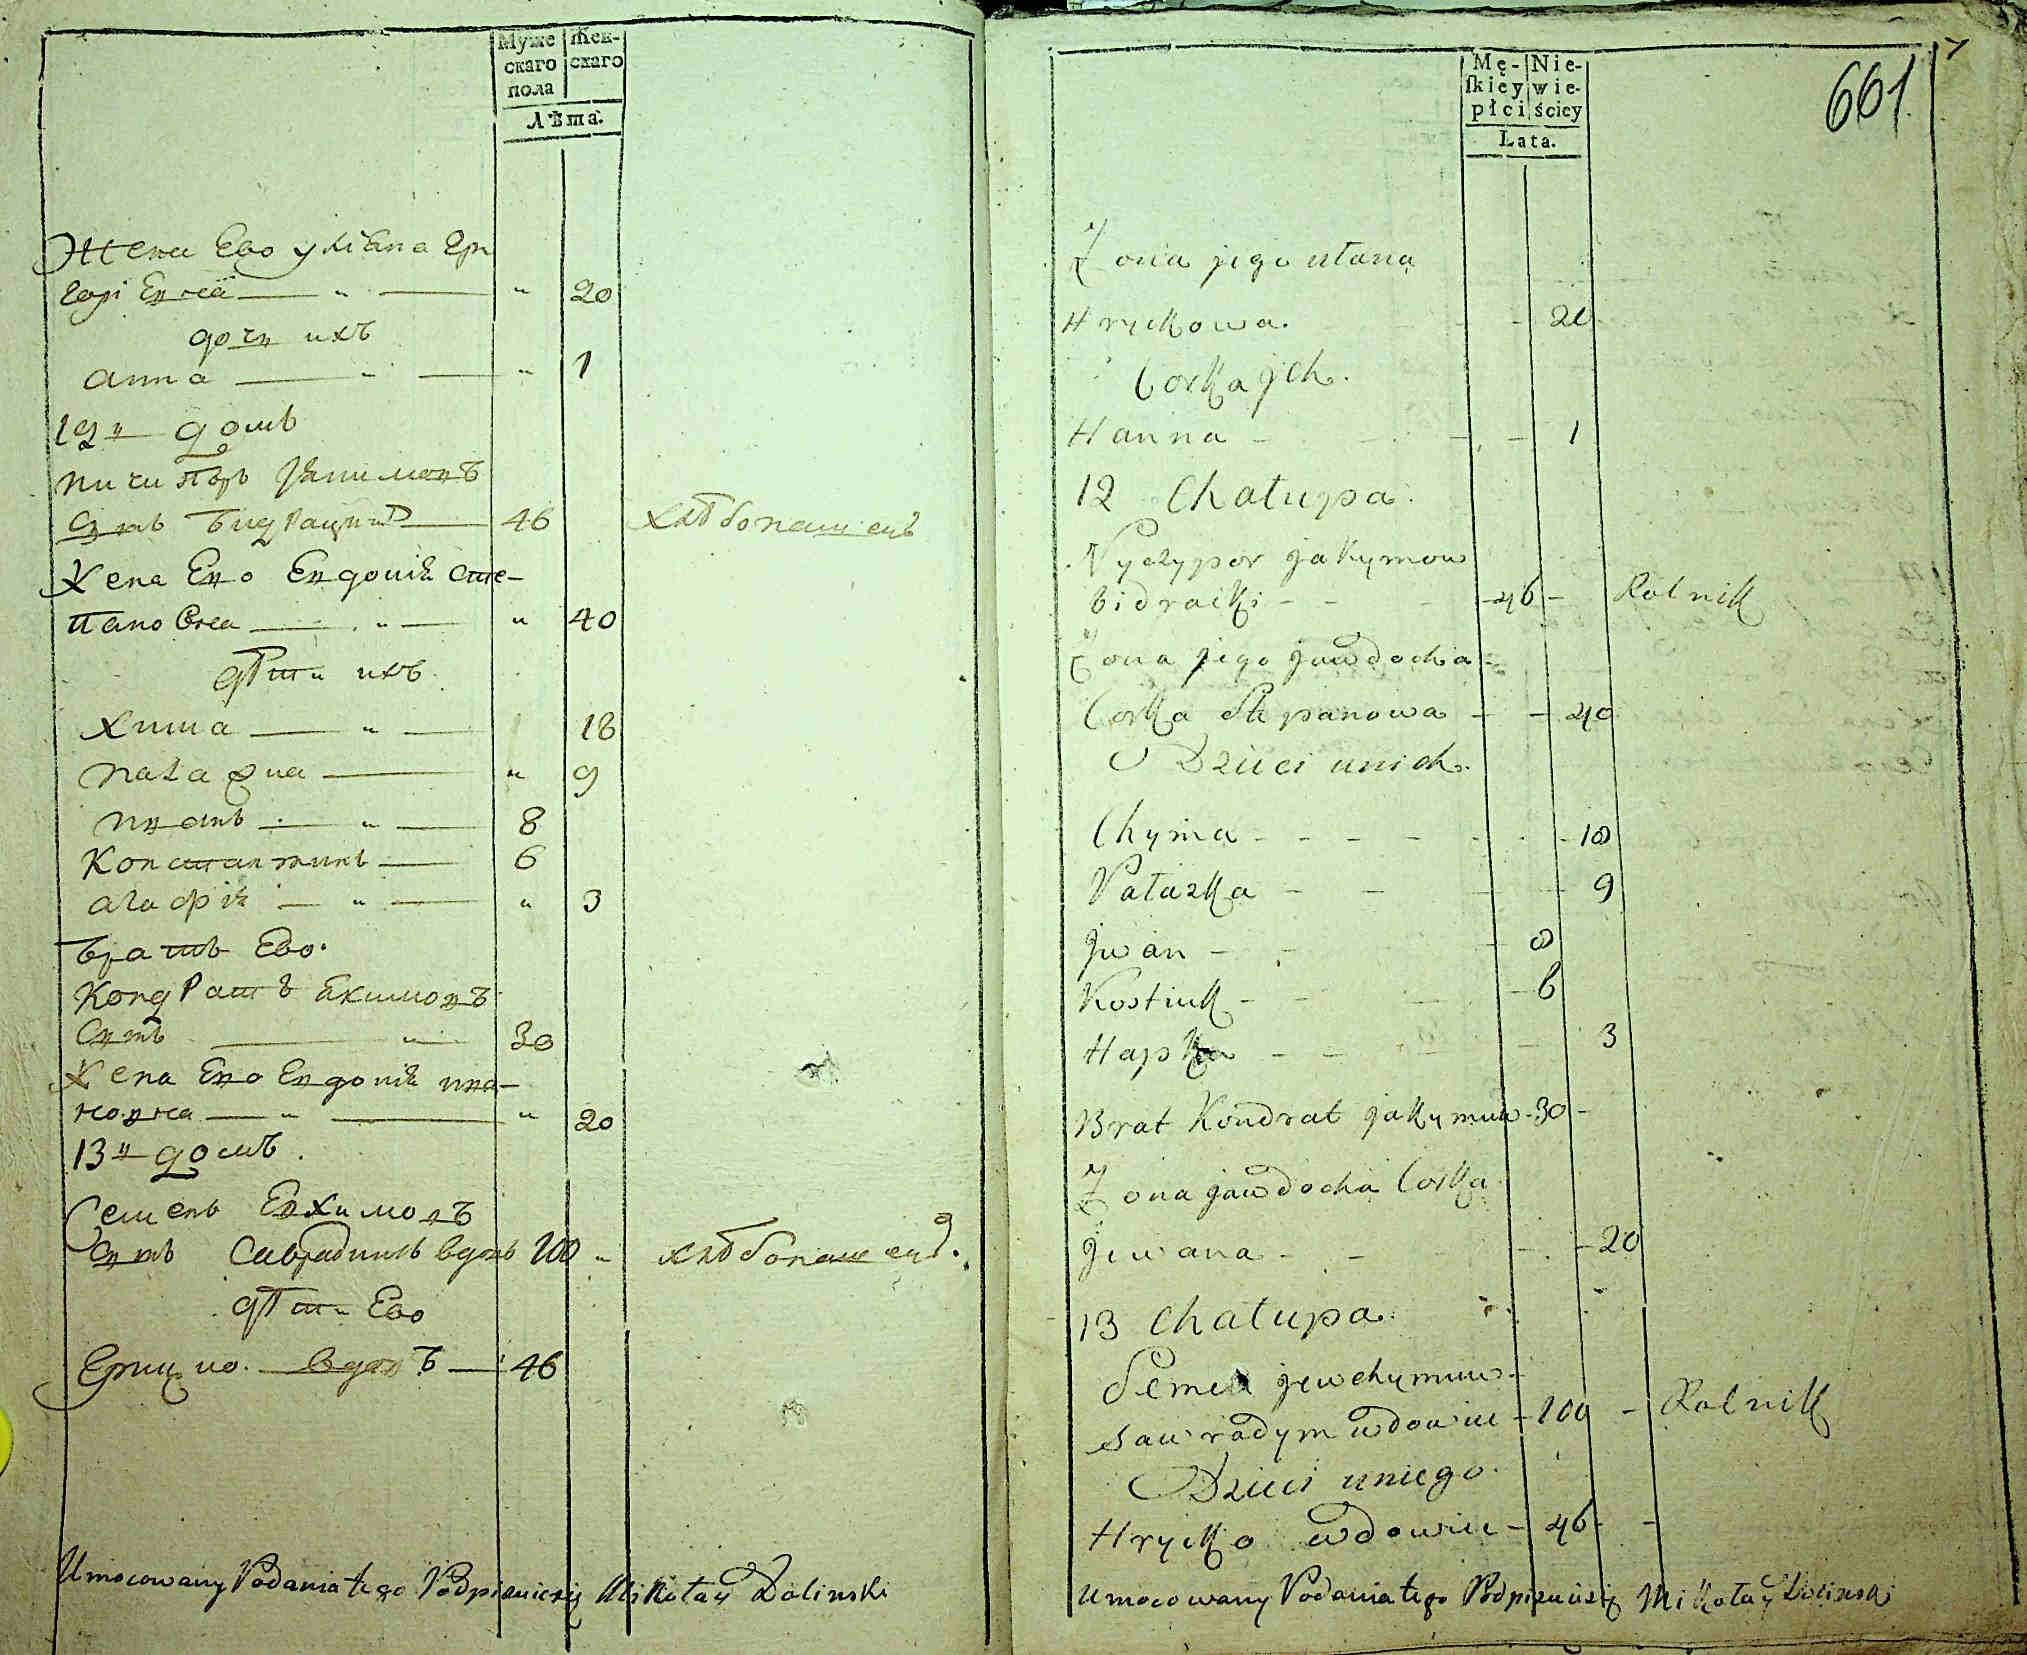 Муже
скаго
пола
Жен-
скаго
Лѣта.
Жена Ево улiана Гри
горiевна " " 20
дочь ихъ
анна " " 1
12й домъ
Ничипоръ Якимовъ
Сынъ Бидрацкий 46 хлѣбопашецъ
Жена Ево Евдокия Сте-
пановна " " 40
дѣти ихъ
Хима " 18
Наталка " 9
Иванъ " 8
Константинъ 6
агафiя " " 3
братъ Ево.
Кондратъ Екимовъ
Сынъ " 30
Жена Ево Евдокия ива-
новна " " 20
13й домъ.
Семенъ Евхимовъ
Сынъ Саврадимъ вдовъ 100 " хлѣбопашецъ.
дѣти Ево
Грицко. вдовъ 46
Umocowany Podania tego Podpisuiesię Mikołay Dolinski
661
Mę-
skiey
płci
Nie-
wie-
ścicy
Lata.
Zona jego ulana
Hryckowa. 20
Corka Jch.
Hanna - 1
12 Chałupa.
Nyczypor Jakymow
bidracki - - 46 - Rolnik
Zona jego Jawdocha -
Corka Stepanowa - - 40
Dzieci unich.
Chyma - - - - 18
Natazka - - 9
Jwan - - 8
Kostiuk - - 6
Hapka - - 3
Brat Kondrat Jakymuw - 30 -
Zona Jawdocha Corka
Jewana - - 20
13 Chałupa.
Semen Jewchymuw -
Sawradym wdowiec - 100 - Rolnik
Dzieci uniego.
Hrycko wdowiec - 46 - -
Umocowany Podania tego Podpisuiesię Mikołay Dolinski